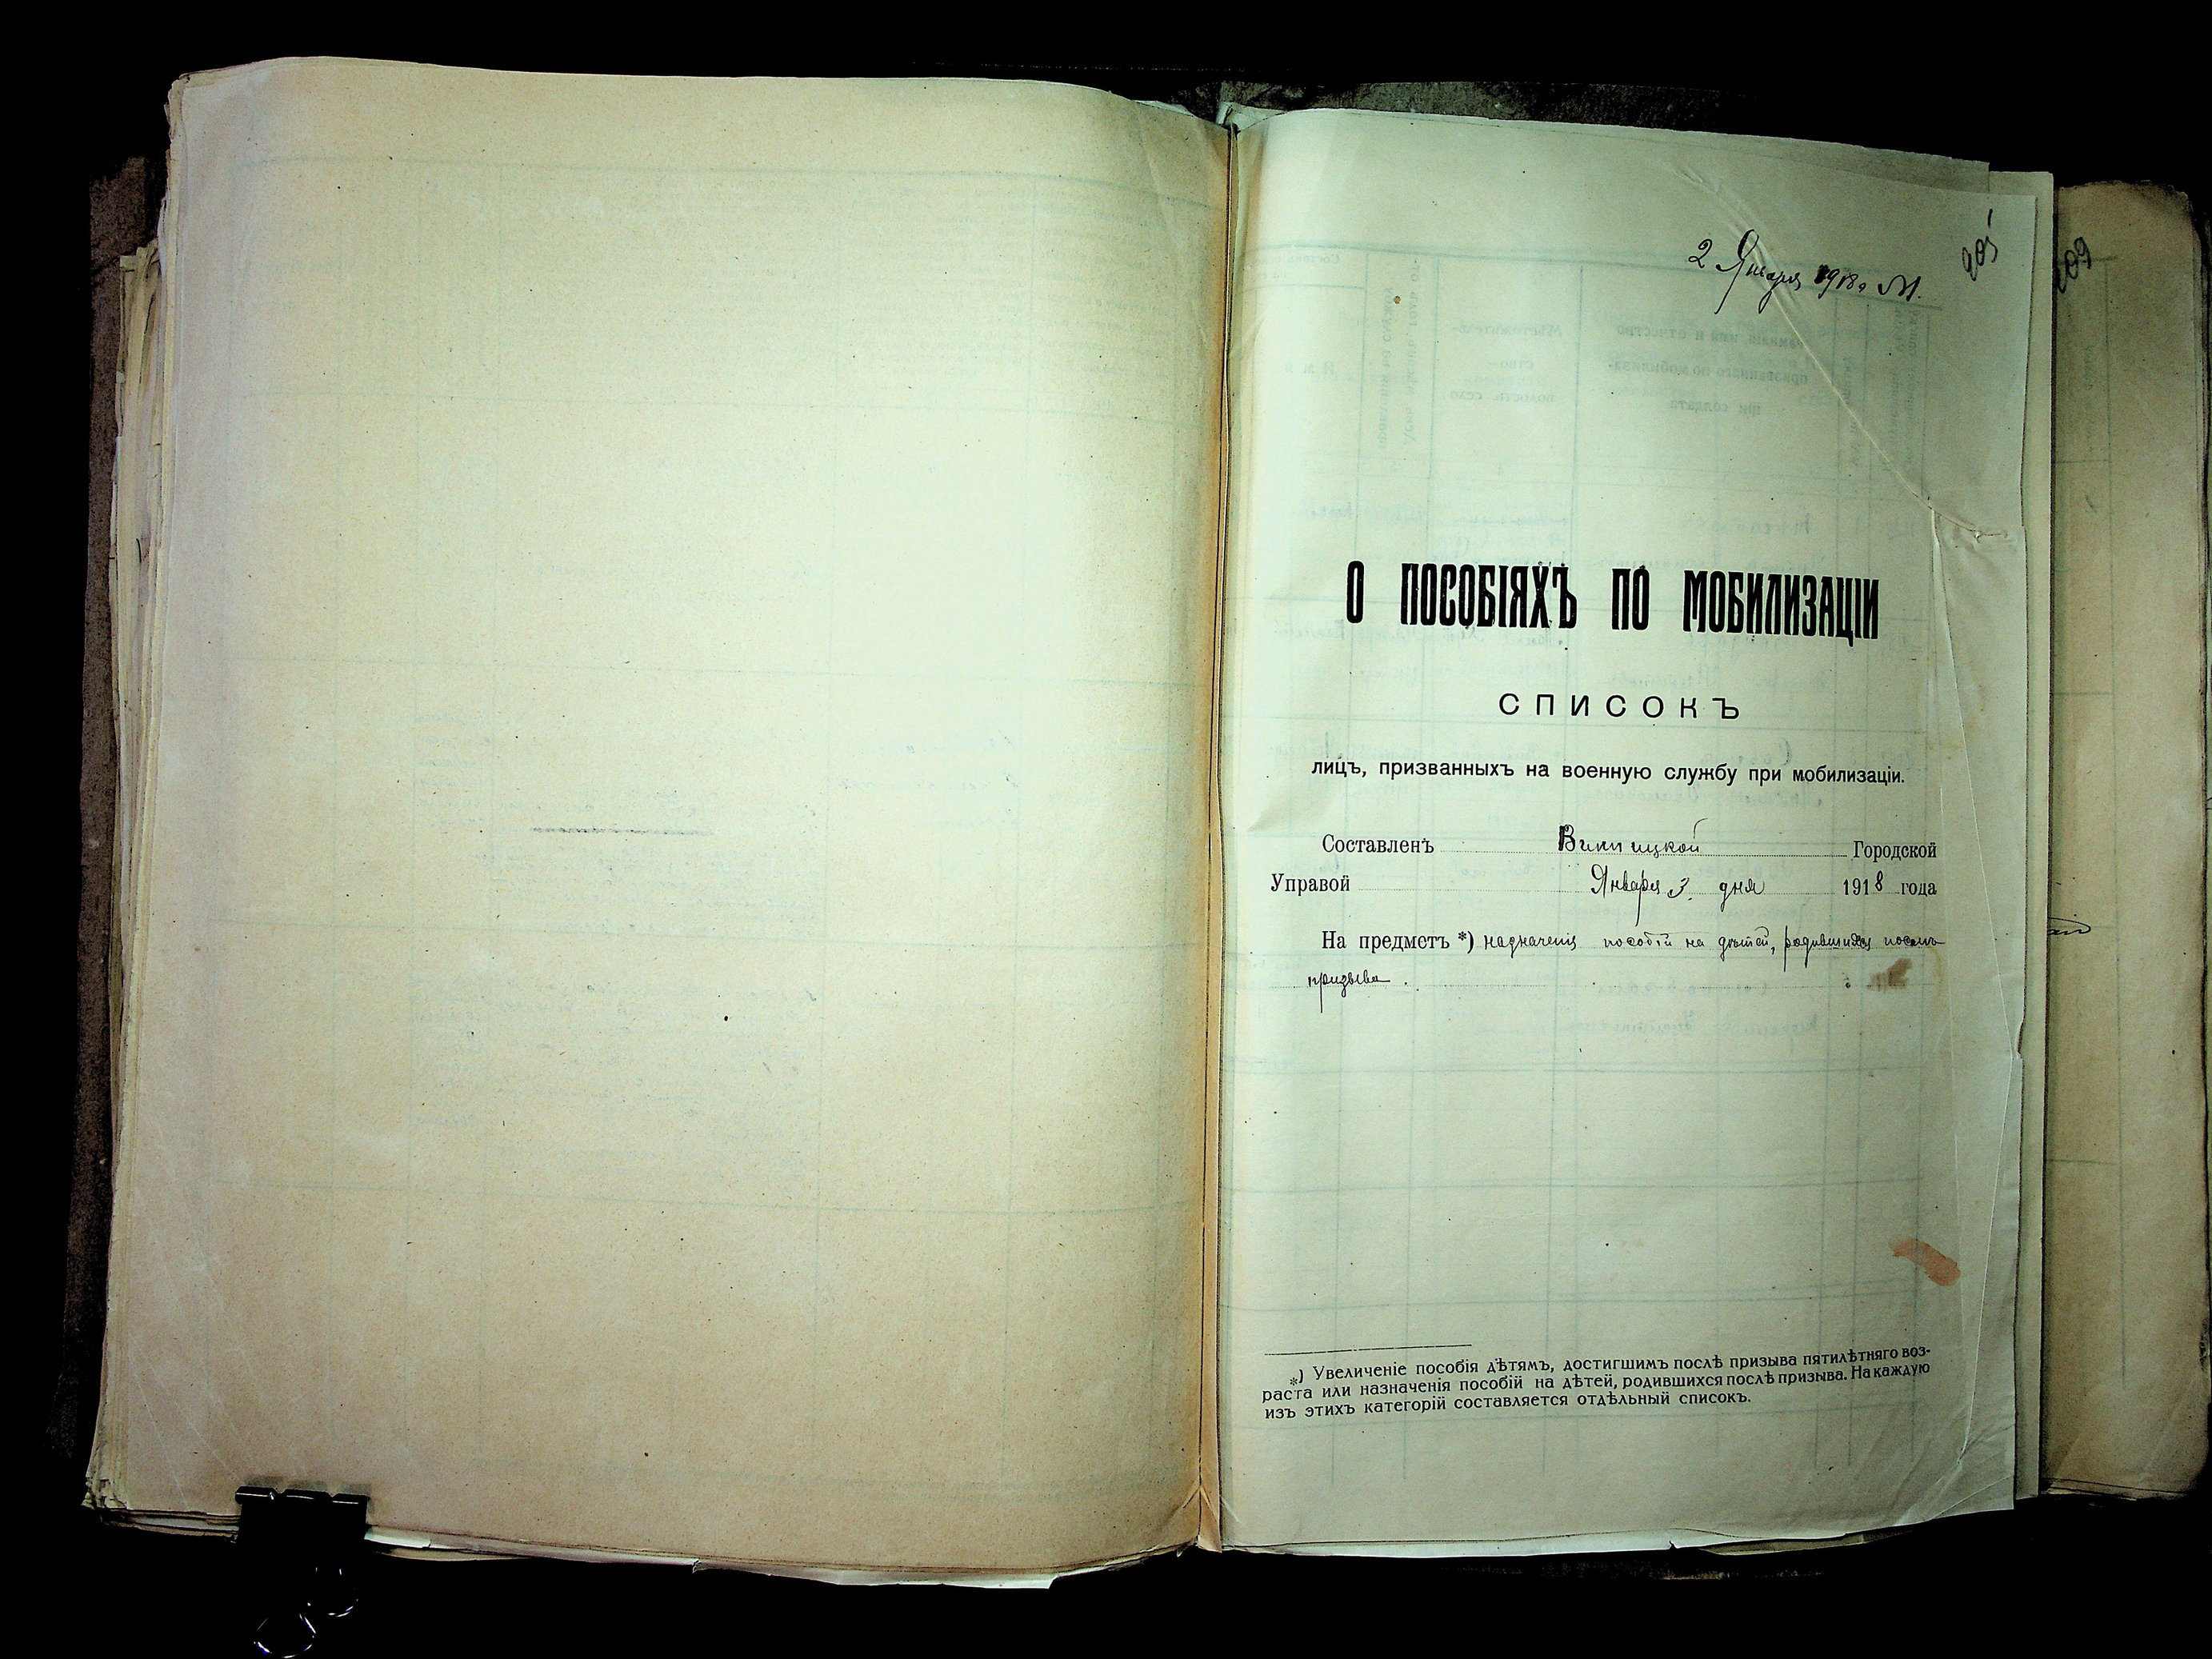 2 Января 1918 г.
205
209
О ПОСОБІЯХЪ ПО МОБИЛИЗАЦІИ
СПИСОКЪ
лицъ, призванныхъ на военную службу при мобилизаціи.
Составленъ Винницкой Городской
Управой Января 3 дня 1918 года
На предметъ *) назначенія пособій на дѣтей, родившихся послѣ
призыва.
*) Увеличеніе пособія дѣтямъ, достигшимъ послѣ призыва пятилѣтняго воз-
раста или назначенія пособій на дѣтей, родившихся послѣ призыва. На каждую
изъ этихъ категорій составляется отдѣльный списокъ.